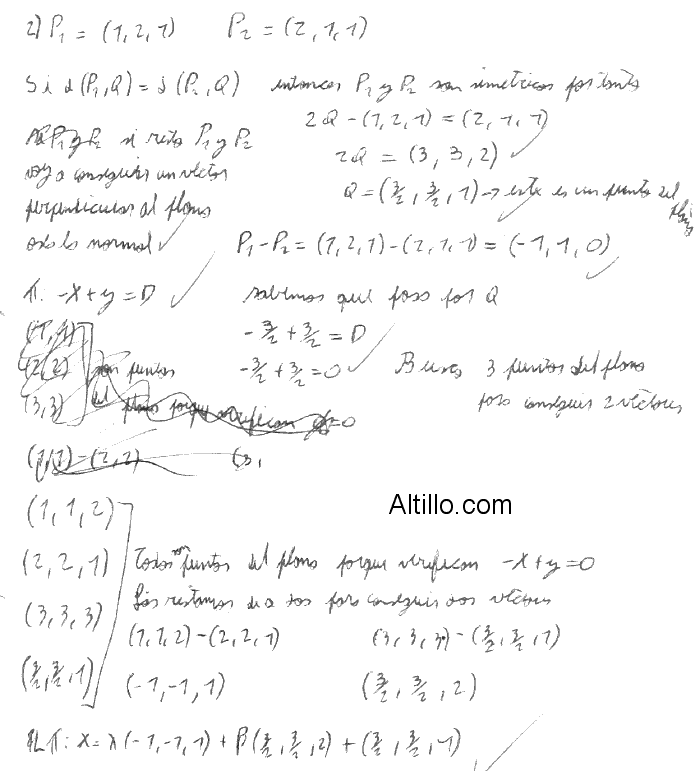 2) P₁ = (1,2,1) P₂ = (2,1,1)
Si d(P₁,Q) = d(P₂,Q) entonces P₁ y P₂ son simetricos por tanto
2Q - (1,2,1) = (2,1,1)
2Q = (3,3,2)
Q = (3/2, 3/2, 1) → este es un punto del plano
si resto P₁ y P₂
voy a conseguir un vector
perpendicular al plano
osea la normal
P₁ - P₂ = (1,2,1) - (2,1,1) = (-1,1,0)
π: -x + y = D sabemos que pasa por Q
-3/2 + 3/2 = D
-3/2 + 3/2 = 0 Busco 3 puntos del plano
para conseguir 2 vectores
(1,1)
(2,2) son puntos
(3,3) del plano porque verifican =0
(1,1) - (2,2) (3,
Altillo.com
(1,1,2)
(2,2,1) Todos son puntos del plano porque verifican -x+y=0
(3,3,3) Los restamos de a dos para conseguir dos vectores
(1,1,2) - (2,2,1) (3,3,3) - (3/2, 3/2, 1)
(3/2, 3/2, 1) (-1,-1,1) (3/2, 3/2, 2)
π: X = λ(-1,-1,1) + β(3/2, 3/2, 2) + (3/2, 3/2, 1)